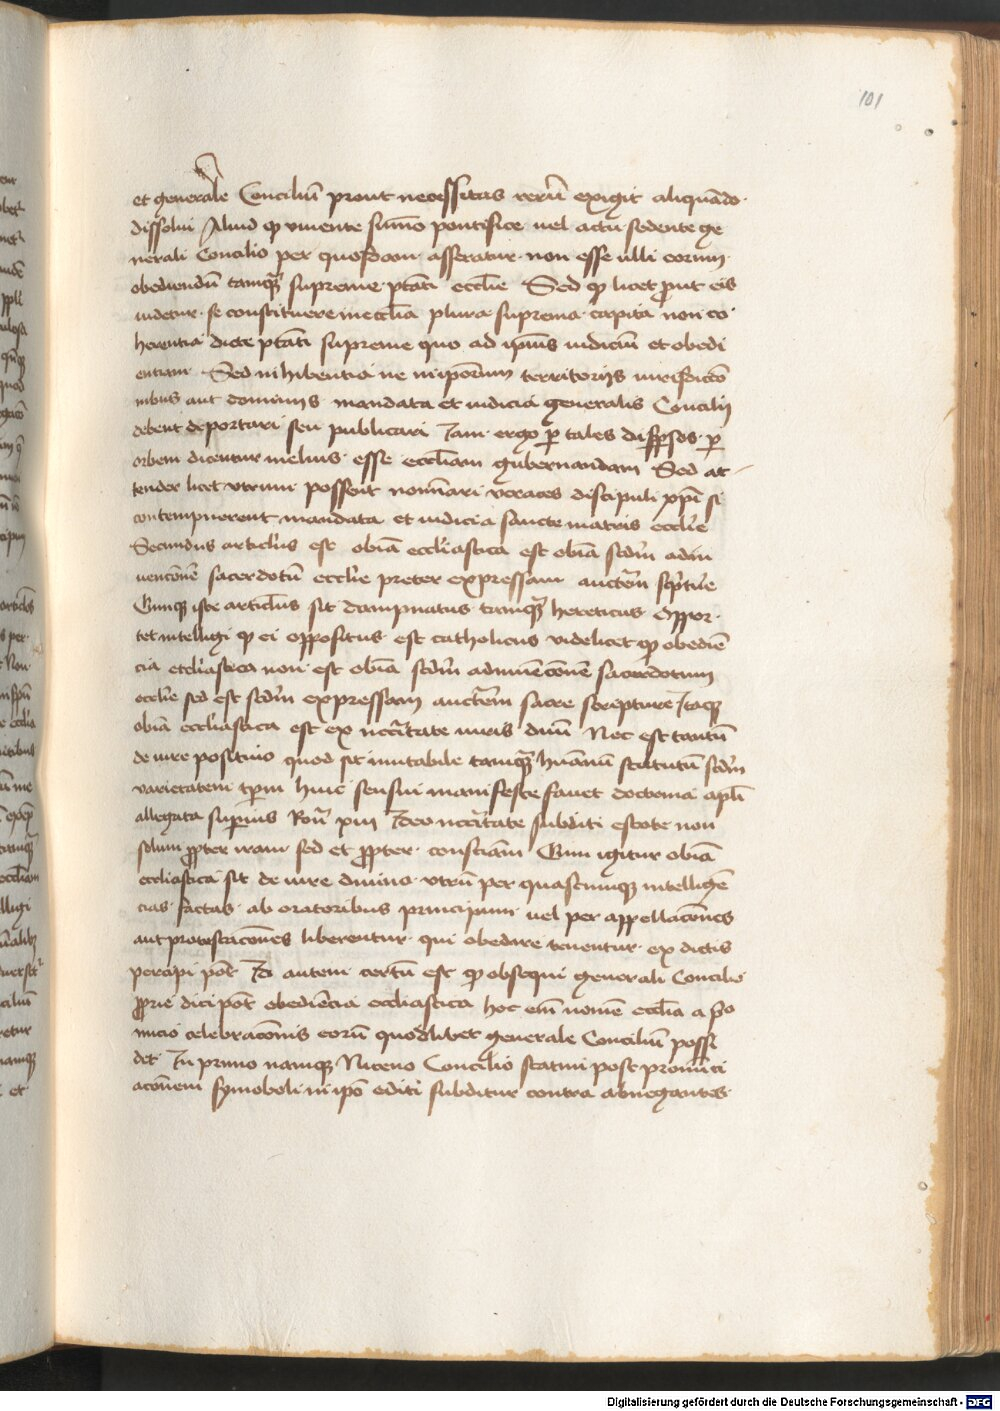 101
et generale Conciliū prout necessitas rerū exigit aliquādo
dissolui Aliud ꝙ viuente sūmo pontifice uel actu sedente ge
nerali Concilio per quosdam asseratur non esse ulli eorum
obediendū tamqȝ supreme ptāti ecclīe Sed ꝙ licet prout eis
videtur se constituere in ecclīa plura suprema capita non co
herentia dicte ptāti supreme quo ad ipius iudiciū et obedi
entiam Sed inhibentia ne in ipōrum territorijs iurisdictō
nibus aut dominijs mandata et iudicia generalis Concilij
debent deportari seu publicari Jam ergo ꝑ tales disꝑsos ꝑ
orbem dicentur melius esse ecclīam gubernandam Sed at
tender licet vtrum possent nomīari veraces discipuli xpī si
contempnerent mandata et iudicia sancte matris ecclīe
Secundus articlus est obīa ecclīastica est obīa scdm adin
uencōnē sacerdotū ecclīe preter expressam auctem scptūre
Cumqȝ iste articlus sit dampnatus tamqȝ hereticus Oppor
tet intelligi ꝙ ei oppositus est catholicus videlicet ꝙ obediē
cia ecclīastica non est obīa scdm adinuēcōnē sacerdotum
ecclīe sed est scdm expressam auctem sacre scripture Itaqȝ
obīa ecclīastica est ex nccitate iuris diui Nec est tantū
de iure positiuo quod sit mutabile tamqȝ hūanū statutū scdm
varietatem tpm huic sensui manifeste fauet doctrina apli
allegata superius Ro xiij Ideo nccitate subditi estote non
solum propter iram sed et propter consciam Cum igitur obīa
ecclīastica sit de iure diuino vtrū per quascumqȝ intelligē
cias factas ab oratoribus principum uel per appellacōnes
aut protestacōnes liberentur qui obedire tenentur ex dictis
percipi pōt Id autem certū est ꝙ obsequi generali Concilio
proprie dici pōt obediēcia ecclīastica hoc eīm nomē ecclīa a pō
inicio celebracōnis eorū quodlibet generale Conciliū possi
det In primo namqȝ Niceno Concilio statim post promūti
acōnem symoboli in ipō editi subditur contra abnegantes